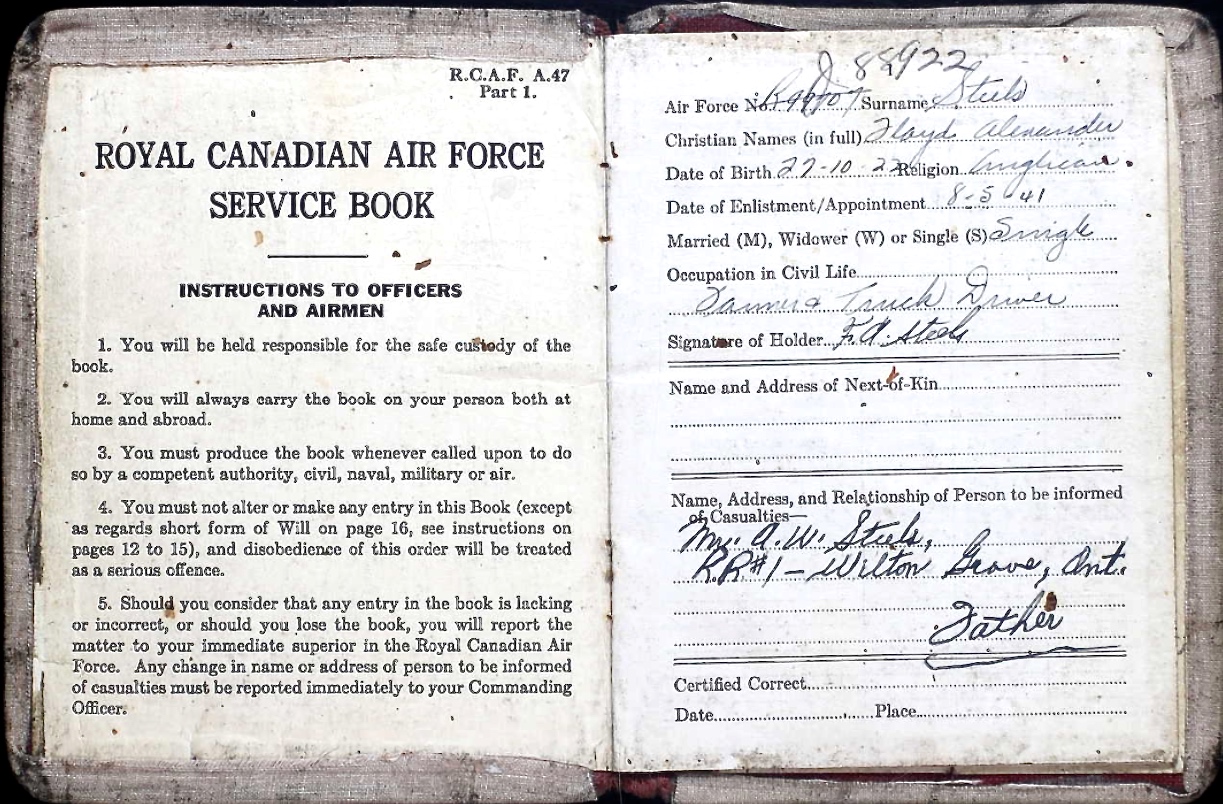 R.C.A.F. A.47
Part 1.
ROYAL CANADIAN AIR FORCE
SERVICE BOOK
INSTRUCTIONS TO OFFICERS
AND AIRMEN
1. You will be held responsible for the safe custody of the
book.
2. You will always carry the book on your person both at
home and abroad.
3. You must produce the book whenever called upon to do
so by a competent authority, civil, naval, military or air.
4. You must not alter or make any entry in this Book (except
as regards short form of Will on page 16, see instructions on
pages 12 to 15), and disobedience of this order will be treated
as a serious offence.
5. Should you consider that any entry in the book is lacking
or incorrect, or should you lose the book, you will report the
matter to your immediate superior in the Royal Canadian Air
Force. Any change in name or address of person to be informed
of casualties must be reported immediately to your Commanding
Officer.
J 88922
Air Force No. Surname Steels
Christian Names (in full) Floyd Alexander
Date of Birth 27-10-22 Religion Anglican.
Date of Enlistment/Appointment 8-5-41
Married (M), Widower (W) or Single (S) Single
Occupation in Civil Life
Farmer & Truck Driver
Signature of Holder F.A. Steels
Name and Address of Next-of-Kin
Name, Address, and Relationship of Person to be informed
of Casualties—
Mr. A.W. Steels,
R.R#1 - Wilton Grove, Ont.
Father
Certified Correct
Date Place